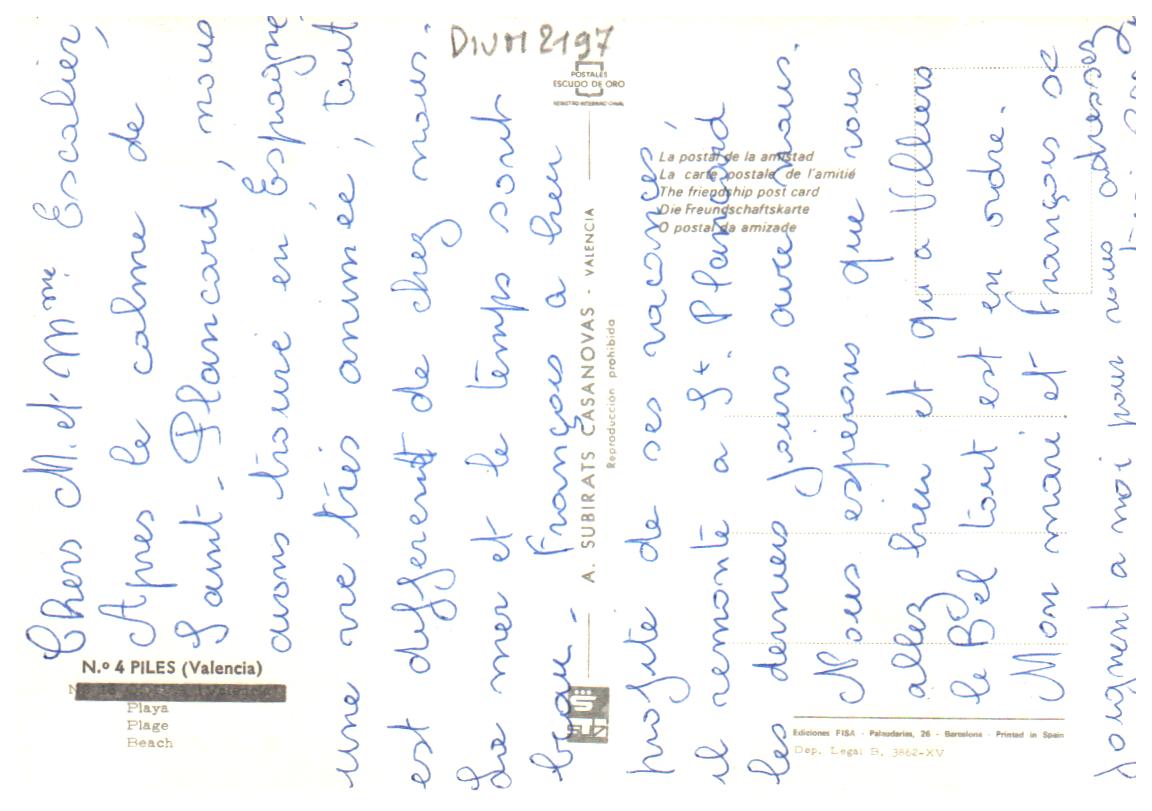 DIVM 2197
POSTALES
ESCUDO DE ORO
REGISTRO INTERNACIONAL
La postal de la amistad
La carte postale de l'amitié
The friendship post card
Die Freundschaftskarte
O postal da amizade
A. SUBIRATS CASANOVAS - VALENCIA
Reproducción prohibida
N.º 4 PILES (Valencia)
Playa
Plage
Beach
Ediciones FISA - Palaudarias, 26 - Barcelona - Printed in Spain
Dep. Legal B. 3862-XV
Chers M. et Mme Escalier,
Apres le calme de
Saint-Plancard, nous
avons trouvé en Espagne
une vie très animée, tout
est different de chez nous.
La mer et le temps sont
beau - François a bien
profité de ses vacances,
il remonte a St. Plancard
les derniers jours avec nous.
Nous esperons que vous
allez bien et qu'a Villiers
le Bel tout est en ordre.
Mon mari et François se
joignent a moi pour vous adresser